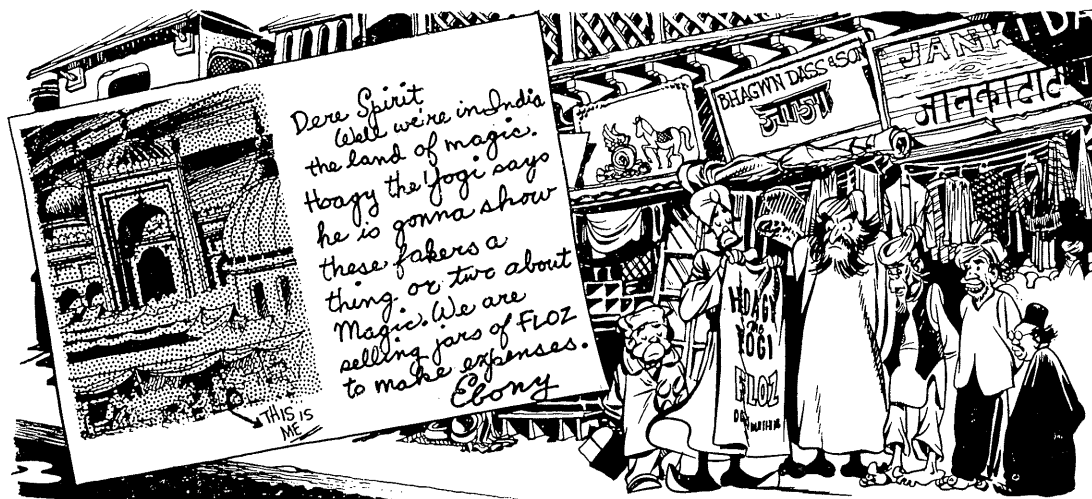 Dere Spirit
Well we're in India
the land of magic.
Hoagy the Yogi says
he is gonna show
these fakers a
thing or two about
Magic. We are
selling jars of FLOZ
to make expenses.
Ebony
THIS IS
ME
BHAGWN DASS & SON
JANKI DA
HOAGY
The
YOGI
FLOZ